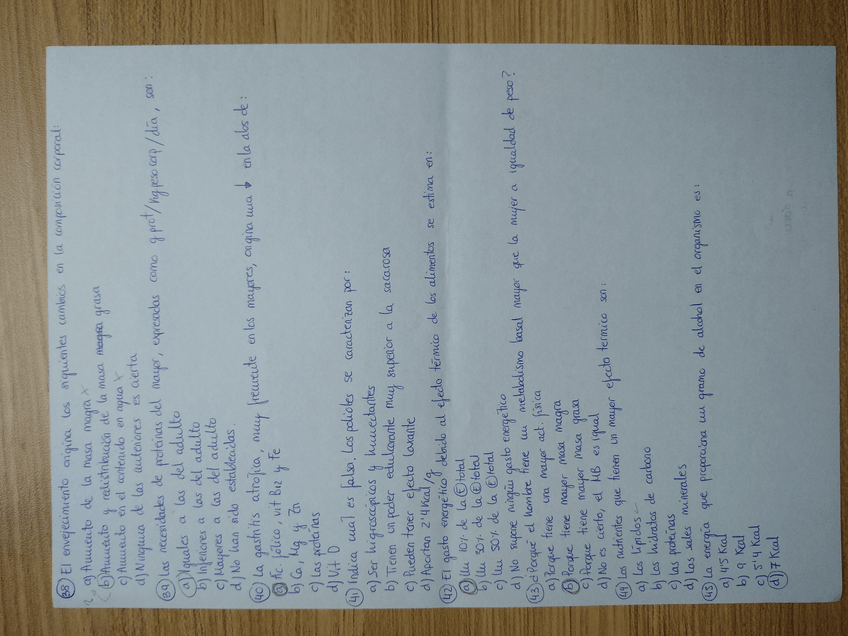 38 El envejecimiento origina los siguientes cambios en la composición corporal:
a) Aumento de la masa magra x
b) Aumento y redistribución de la masa grasa
c) Aumento en el contenido en agua x
d) Ninguna de las anteriores es cierta
39 Las necesidades de proteínas del mayor, expresadas como g prot/kg peso corp/día, son:
a) Iguales a las del adulto
b) Inferiores a las del adulto
c) Mayores a las del adulto
d) No han sido establecidas.
40 La gastritis atrófica, muy frecuente en los mayores, origina una ↓ en la abs de:
a) Ác. fólico, vit B12 y Fe
b) Ca, Mg y Zn
c) Las proteínas
d) Vit D
41 Indica cual es falso. Los polioles se caracterizan por:
a) Ser higroscópicos y humectantes
b) Tienen un poder edulcorante muy superior a la sacarosa
c) Pueden tener efecto laxante
d) Aportan 2'4 Kcal/g
42 El gasto energético debido al efecto térmico de los alimentos se estima en:
a) Un 10% de la E total
b) Un 30% de la E total
c) Un 50% de la E total
d) No supone ningún gasto energético
43 ¿Porqué el hombre tiene un metabolismo basal mayor que la mujer a igualdad de peso?
a) Porque tiene una mayor act. física
b) Porque tiene mayor masa magra
c) Porque tiene mayor masa grasa
d) No es cierto, el MB es igual
Los nutrientes que tienen un mayor efecto termico son:
a) Los lípidos
b) Los hidratos de carbono
c) Las proteínas
d) Las sales minerales
La energía que proporciona un gramo de alcohol en el organismo es:
a) 4'5 Kcal
b) 9 Kcal
c) 5'4 Kcal
d) 7 Kcal